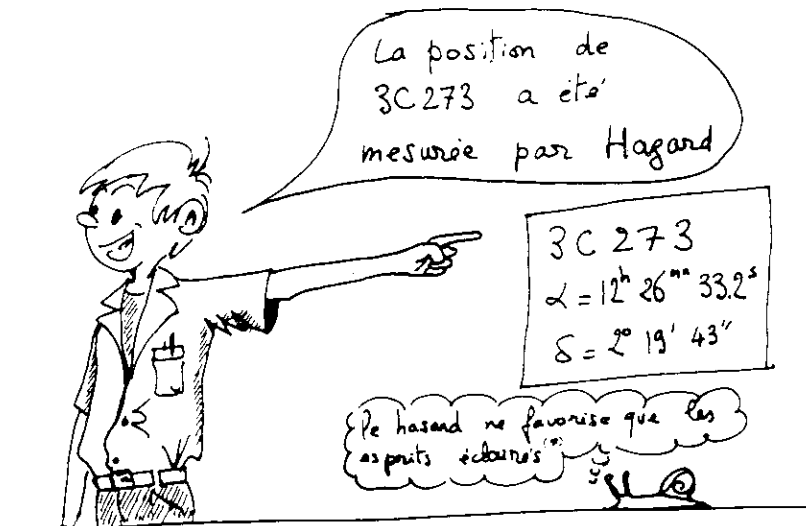 La position de
3C273 a été
mesurée par Hagard
3C 273
α = 12ʰ 26ᵐⁿ 33.2ˢ
δ = 2° 19' 43"
Le hasard ne favorise que les
esprits éclairés (*)